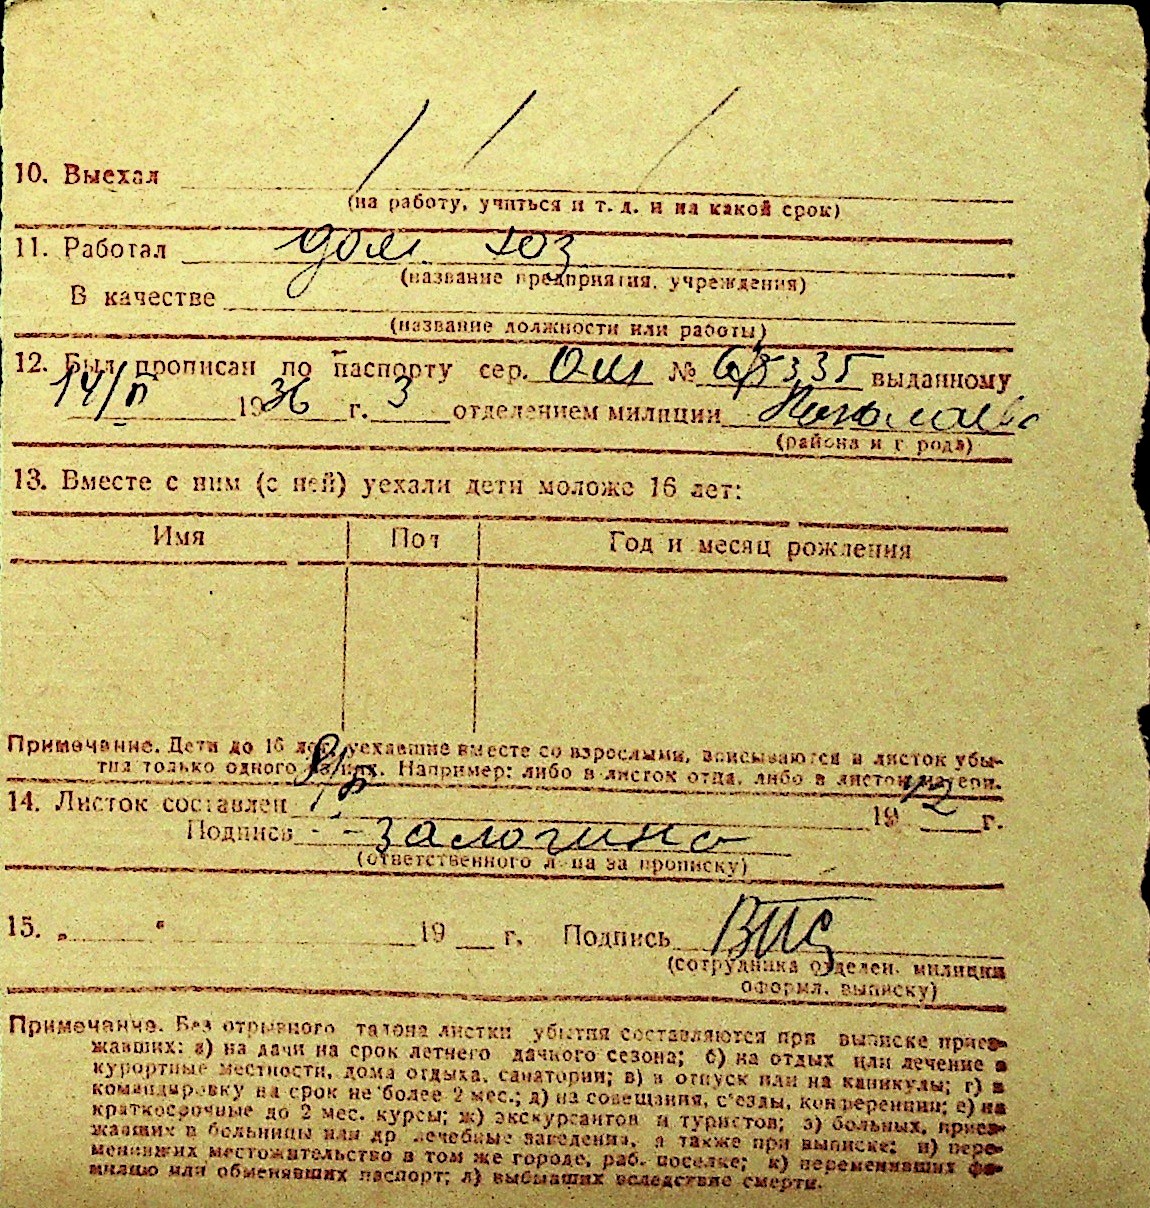 10. Выехал
(на работу, учиться и т. д. и на какой срок)
11. Работал дом хоз
(название предприятия, учреждения)
В качестве
(название должности или работы)
12. Был прописан по паспорту сер. № выданному
14/II 1936 г. 3 отделением милиции
(района и города)
13. Вместе с ним (с ней) уехали дети моложе 16 лет:
Имя Пол Год и месяц рождения
Примечание. Дети до 16 лет, уехавшие вместе со взрослыми, вписываются в листок убы-
тия только одного из них. Например: либо в листок отца, либо в листок матери.
14. Листок составлен 19 г.
Подпись Залогина
(ответственного лица за прописку)
15. „ “ 19 г. Подпись
(сотрудника отделен. милиции
оформл. выписку)
Примечание. Без отрывного талона листки убытия составляются при выписке приез-
жавших: а) на дачи на срок летнего дачного сезона; б) на отдых или лечение в
курортные местности, дома отдыха, санатории; в) в отпуск или на каникулы; г) в
командировку на срок не более 2 мес.; д) на совещания, с'езды, конференции; е) на
краткосрочные до 2 мес. курсы; ж) экскурсантов и туристов; з) больных, приез-
жавших в больницы или др лечебные заведения, а также при выписке: и) пере-
менивших местожительство в том же городе, раб. поселке; к) переменивших фа-
милию или обменявших паспорт; л) выбывших вследствие смерти.